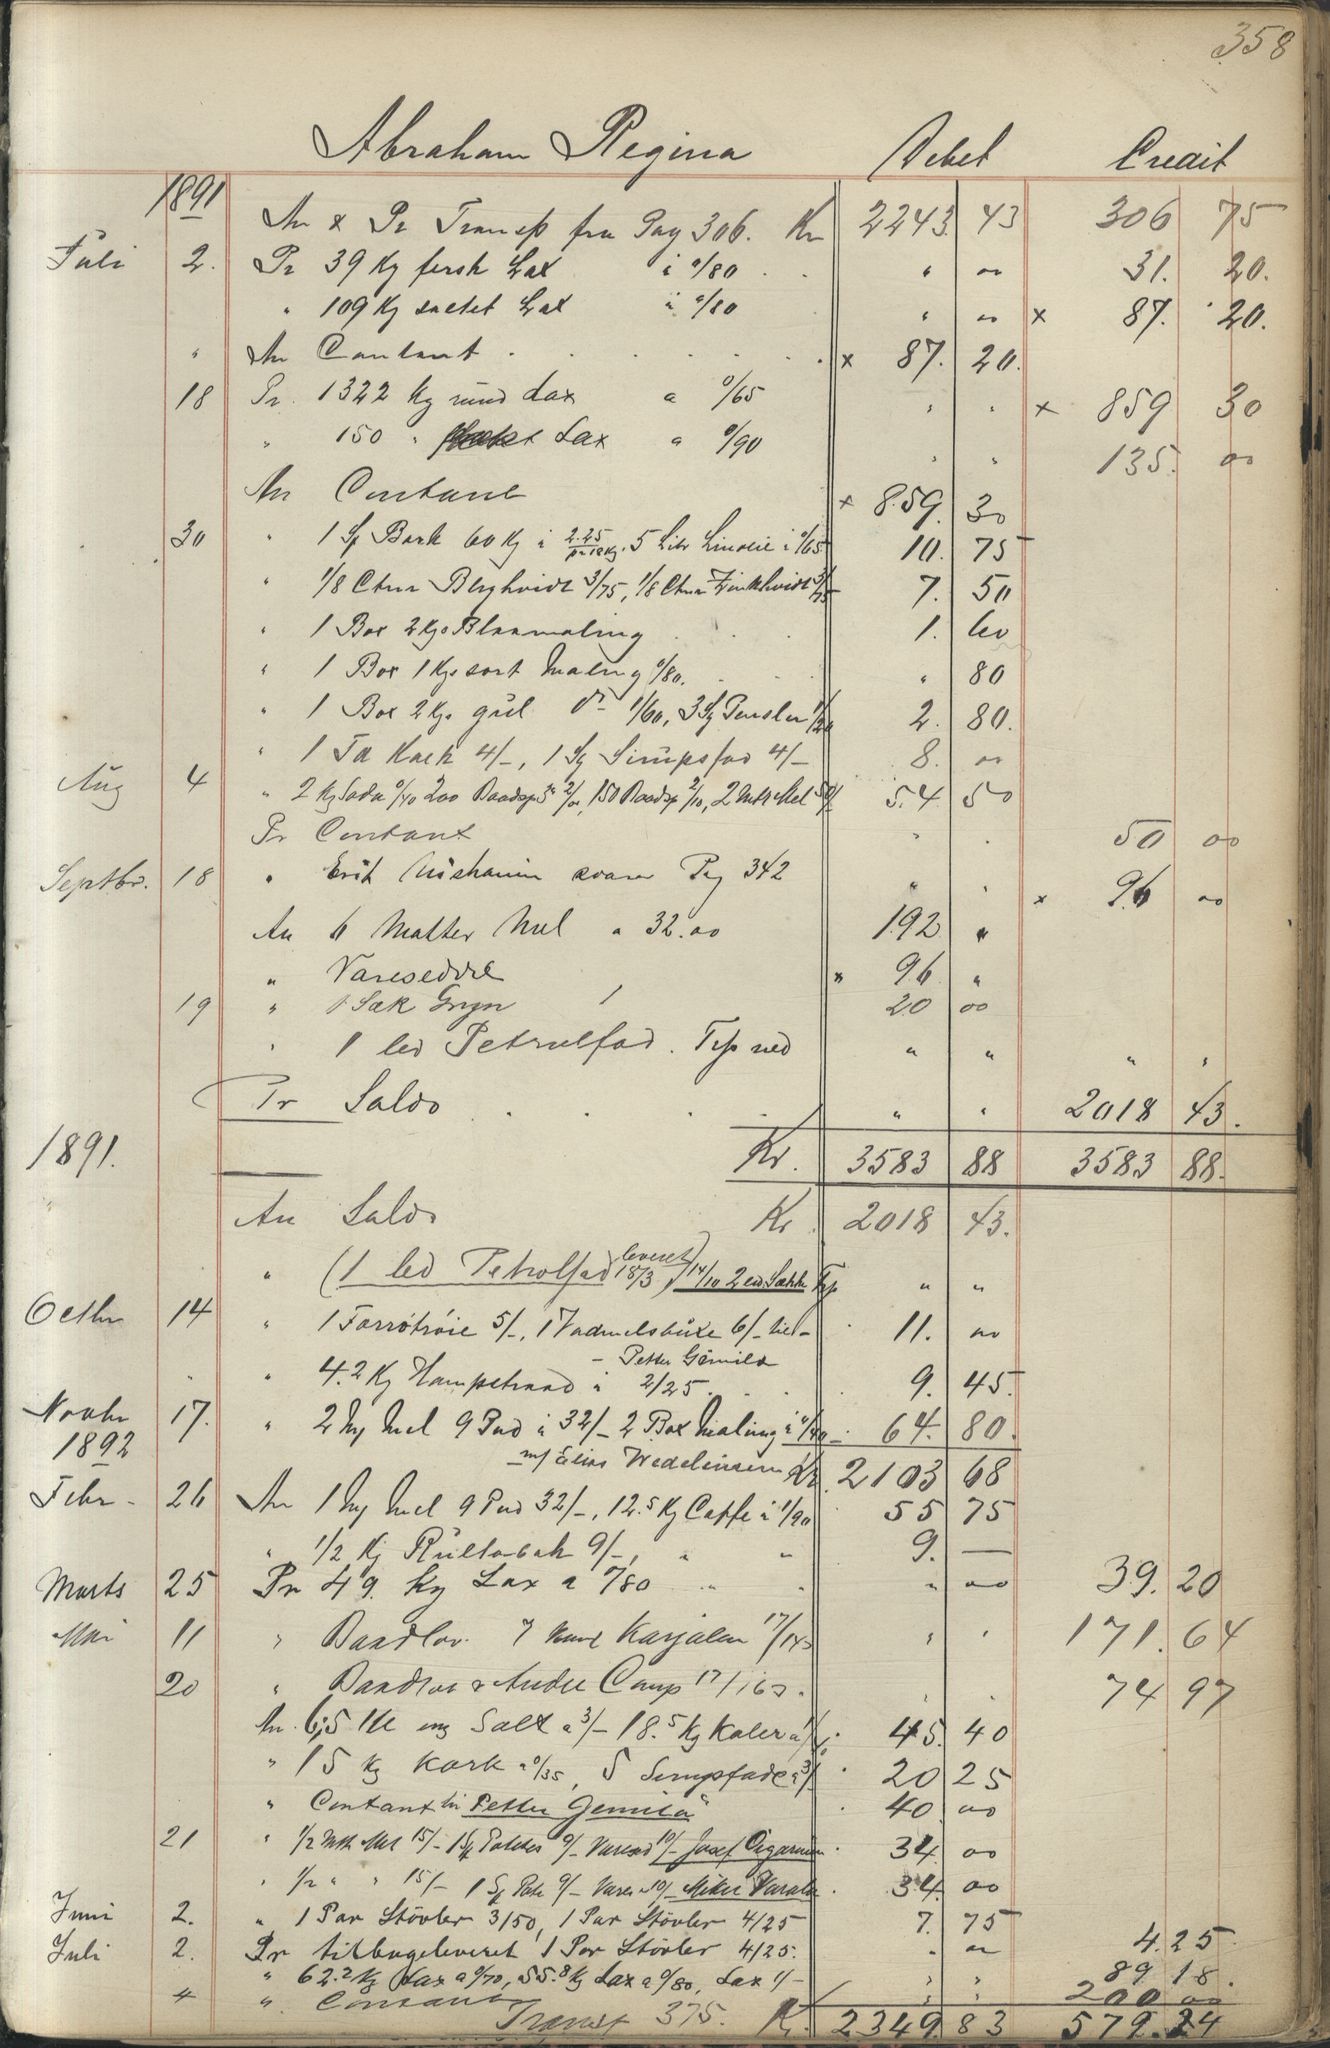 358
Abraham Regina Debet Credit
1891 An & Pr Transp fra Pag 306. Kr 2243. 43 306 75
Juli 2. Pr 39 Kg fersk Lax à 0/80 " 00 31. 20.
" 109 Kg saltet Lax à 0/80 " 00 x 87. 20.
" An Contant x 87. 20.
18 Pr. 1322 Kg rund Lax a 0/65 " " x 859 30
" 150 " Lax a 0/90 " " 135. 00
An Contant x 859. 30
30 " 1 Sk Bark 60 Kg à 2.25 pr 18 Kg. 5 Litr Linolie à 0/65 10. 75
" 1/8 Ctnr Blyhvidt 3/75, 1/8 Ctnr Zinkhvidt 3/75 7. 50
" 1 Box 2 Kgs Blaamaling 1. 60
" 1 Box 1 Kgs sort Maling 0/80. " 80
" 1 Box 2 Kgs gul do 1/60, 3 St Pensler 1/20 2. 80.
" 1 Td Kalk 4/-, 1 St Sirupsfad 4/- 8. 00
Aug 4 " 2 Kg Soda 0/40 200 Baadsp 3" 2/00, 150 Baadsp 2/10, 2 Mtr Mel 50/- 54. 50
Pr Contant " " 50 00
Septbr. 18 " Erik svarer Pag 342 " " x 96 00
An 6 Matter Mel a 32.00 192 "
" Vareseddel x 96 "
19 " 1 Sæk Gryn 20 00
" 1 led Petrolfad. Trp ned " " " "
Pr Saldo " " 2018 43.
1891. Kr. 3583 88 3583 88.
An Saldo Kr. 2018 43.
" (1 led Petrolfad leveret 18/3) 14/10 2 led Sække Trp " "
Octbr 14 " 1 Færøtrøie 5/-, 1 Vadmelsbuxe 6/- til - 11. 00
- Petter Gemila
" " 4.2 Kg Hampetraad à 2/25 9. 45.
Novbr 17. " 2 Mt Mel 9 Pud à 32/- 2 Box Maling à 0/40 - 64. 80.
1892 m/ Elias Wedelinsen Kr. 2103 68
Febr - 26 An 1 Mt Mel 9 Pud 32/-, 12.5 Kg Caffe à 1/90 55 75
" 1/2 Kg Rultobak 9/-, " " 9. —
Marts 25 Pr 49. Kg Lax a 0/80 " " " 00 39. 20
Mai 11 " Baadlov. Karjalan 17/ " " 171. 64
20 " Baadlov & Andre Comp 17/ " " 74 97
An. 6,5 Salt a 3/- 18.5 Kg 45. 40
" 15 Kg Kork a 0/35, 5 Sirupsfade a 3/- 20 25
" Contant til Petter Gemila 40 00
21 " 1/2 Mtt Mel 15/- 1 Sk Potetes 9/- Varesed 10/- Josef 34 00
" 1/2 " " 15/- 1 Sk Pote 9/- Varesed 10/- Mikel Varala 34. 00
Juni 2. " 1 Par Støvler 3/50, 1 Par Støvler 4/25 7. 75
Juli 2. Pr tilbageleveret 1 Par Støvler 4/25. " 00 4. 25
" 62.2 Kg Lax a 0/70, 55.8 Kg Lax a 0/80, Lax 1/- " " 89 18.
4 " Contant " " 200 00
Transt 375. Kr. 2349 83 579. 24